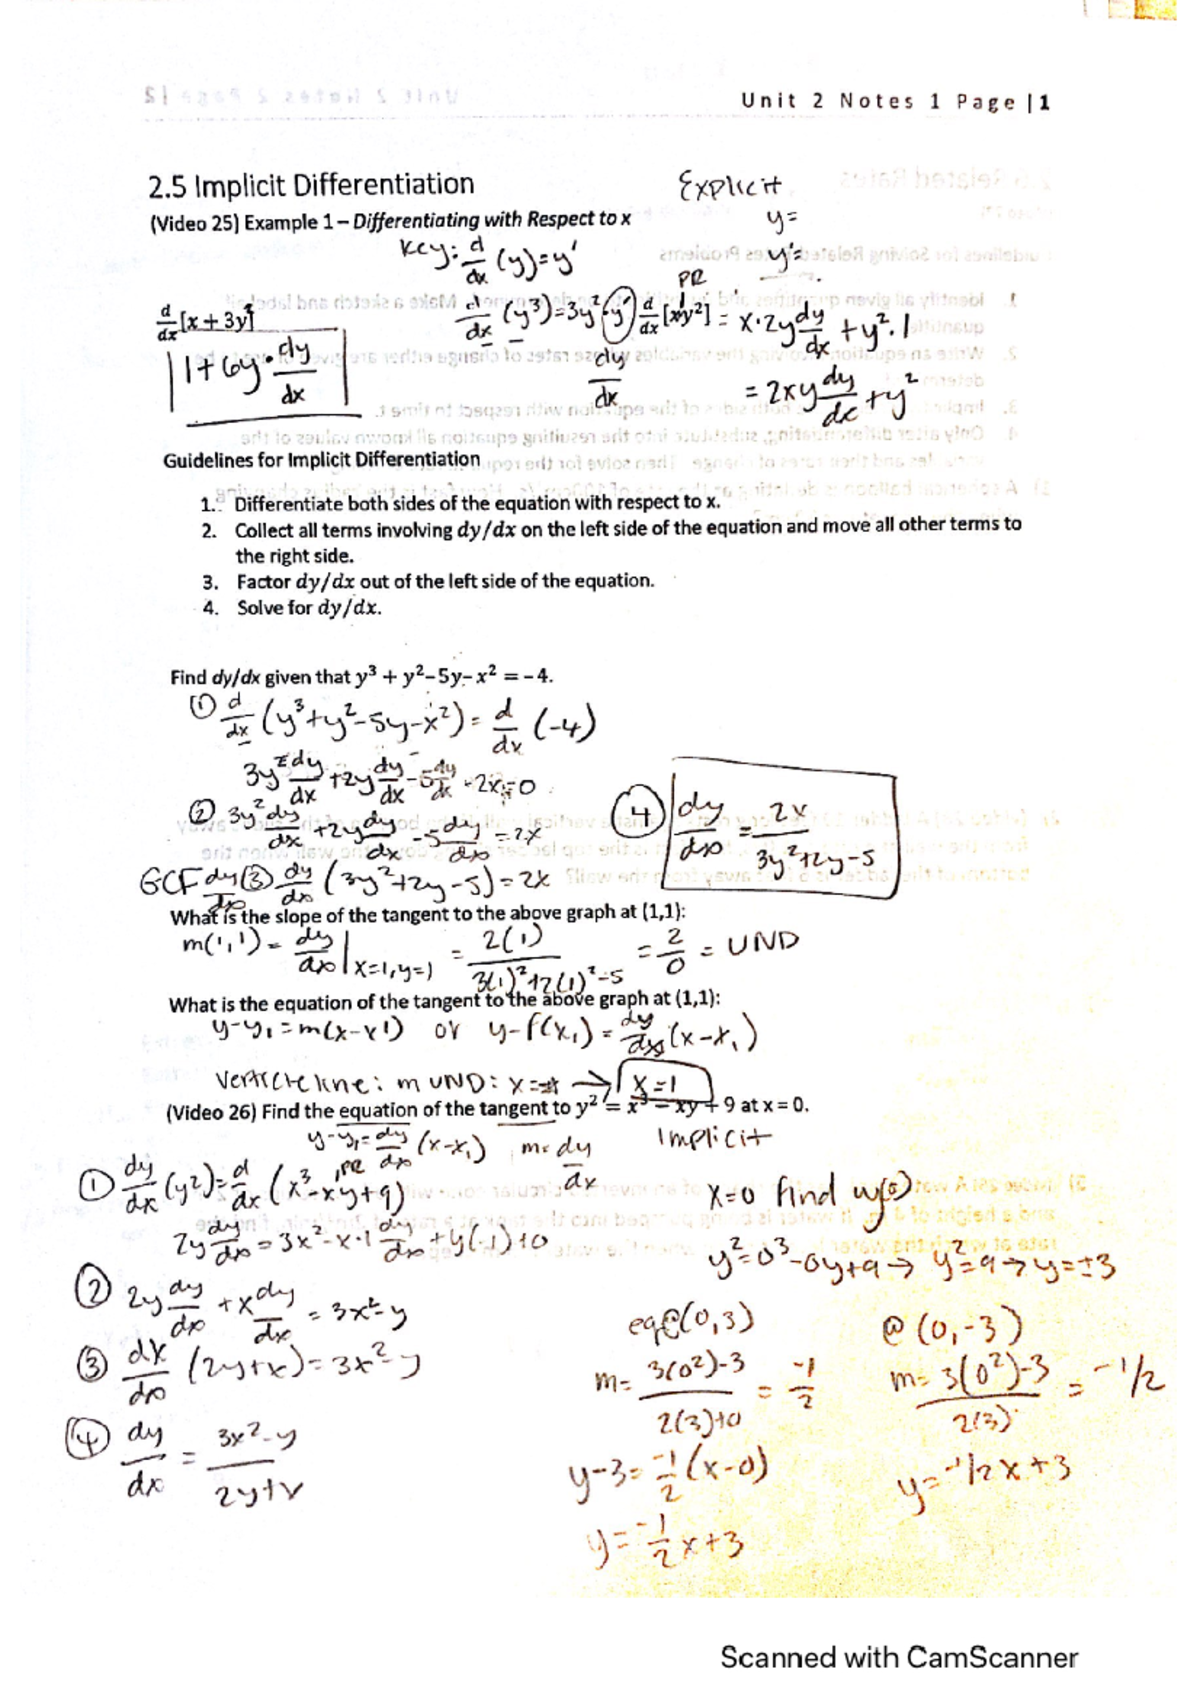 Unit 2 Notes 1 Page | 1
2.5 Implicit Differentiation
Explicit
(Video 25) Example 1 – Differentiating with Respect to x
y=
Key: d/dx (y) = y'
y'=
PR
d/dx [x + 3y²]
d/dx (y³) = 3y² · y'
dy/dx
d/dx [xy²] = x·2y dy/dx + y²·1
1 + 6y · dy/dx
= 2xy dy/dx + y²
Guidelines for Implicit Differentiation
1. Differentiate both sides of the equation with respect to x.
2. Collect all terms involving dy/dx on the left side of the equation and move all other terms to
the right side.
3. Factor dy/dx out of the left side of the equation.
4. Solve for dy/dx.
Find dy/dx given that y³ + y² – 5y – x² = – 4.
① d/dx (y³+y²-5y-x²) = d/dx (-4)
3y² dy/dx + 2y dy/dx - 5 dy/dx - 2x = 0
② 3y² dy/dx + 2y dy/dx - 5 dy/dx = 2x
④ dy/dx = 2x / 3y²+2y-5
GCF dy/dx ③ dy/dx (3y²+2y-5) = 2x
What is the slope of the tangent to the above graph at (1,1):
m(1,1) = dy/dx | x=1, y=1 = 2(1) / 3(1)²+2(1)²-5 = 2/0 = UND
What is the equation of the tangent to the above graph at (1,1):
y-y₁ = m(x-x1) or y-f(x₁) = dy/dx (x-x₁)
m UND: x= → x=1
(Video 26) Find the equation of the tangent to y² = x³ – xy + 9 at x = 0.
y-y₁ = dy/dx (x-x₁) m= dy/dx
Implicit
① dy/dx (y²) = d/dx (x³-xy+9)
PR
x=0 find
2y dy/dx = 3x² - x·1 dy/dx + y(-1) + 0
y² = 0³-0y+9 → y²=9 → y=±3
② 2y dy/dx + x dy/dx = 3x²-y
③ dx/dx (2y+x) = 3x²-y
④ dy/dx = 3x²-y / 2y+x
eq@(0,3)
m= 3(0²)-3 / 2(3)+0 = -1/2
y-3 = -1/2 (x-0)
y = -1/2 x+3
@ (0,-3)
m= 3(0²)-3 / 2(3) = -1/2
y= -1/2x+3
Scanned with CamScanner